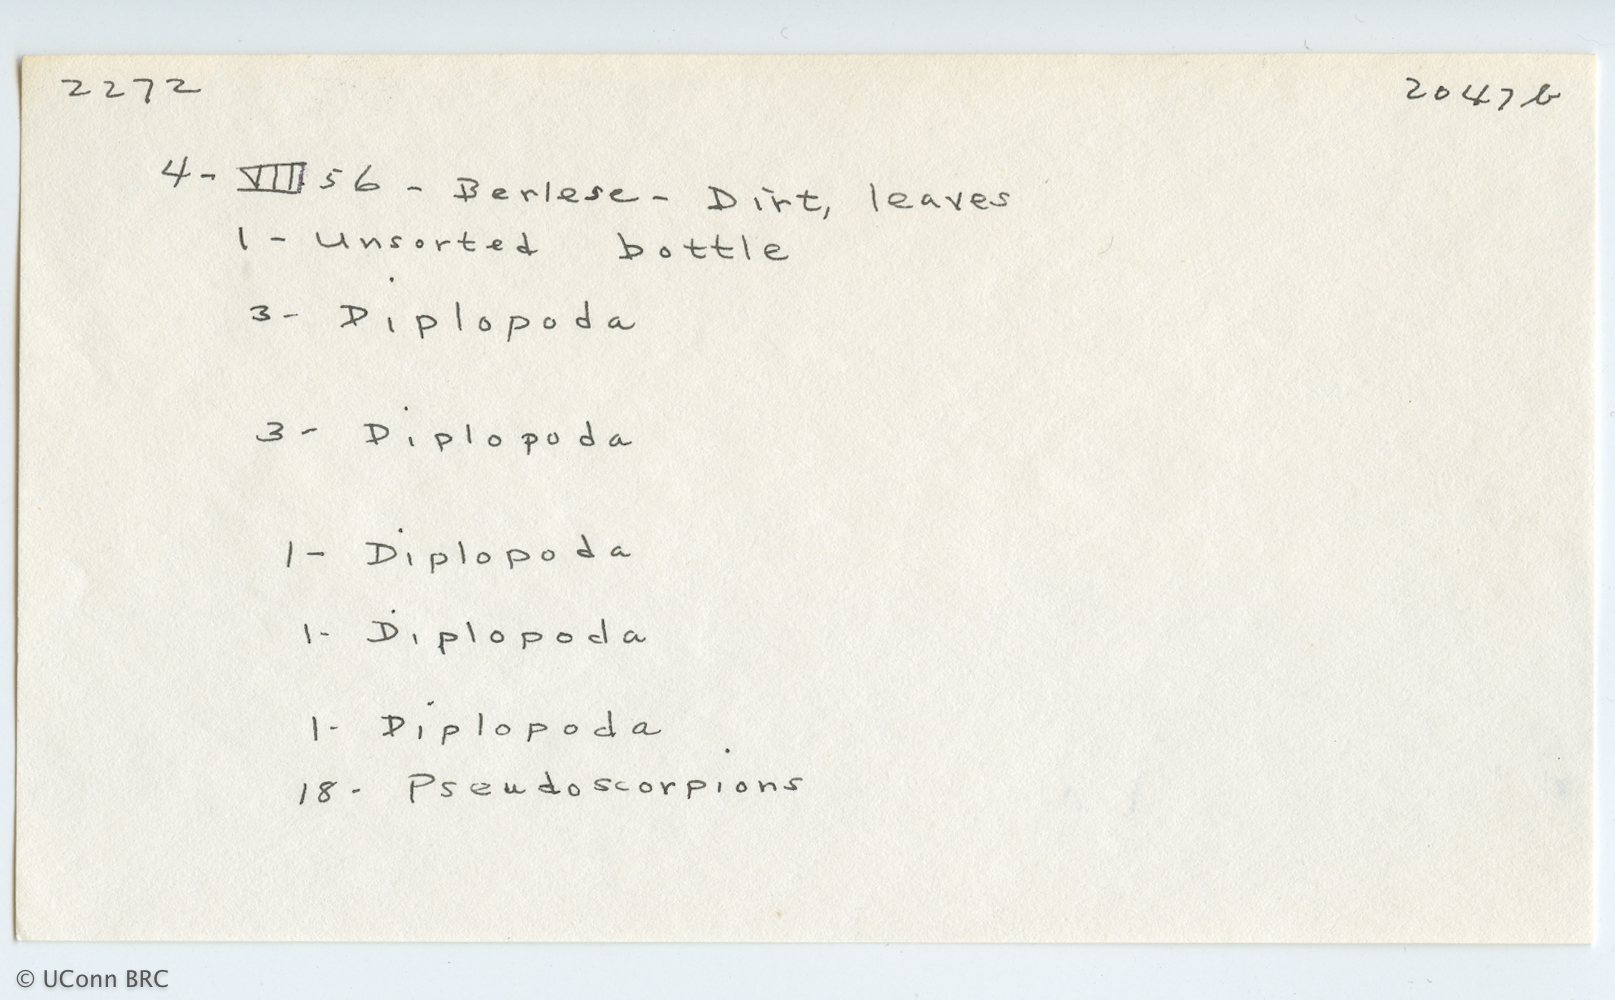 2272 2047b
4- VIII 56 - Berlese - Dirt, leaves
1 - Unsorted bottle
3- Diplopoda
3- Diplopoda
1- Diplopoda
1- Diplopoda
1- Diplopoda
18- Pseudoscorpions
© UConn BRC